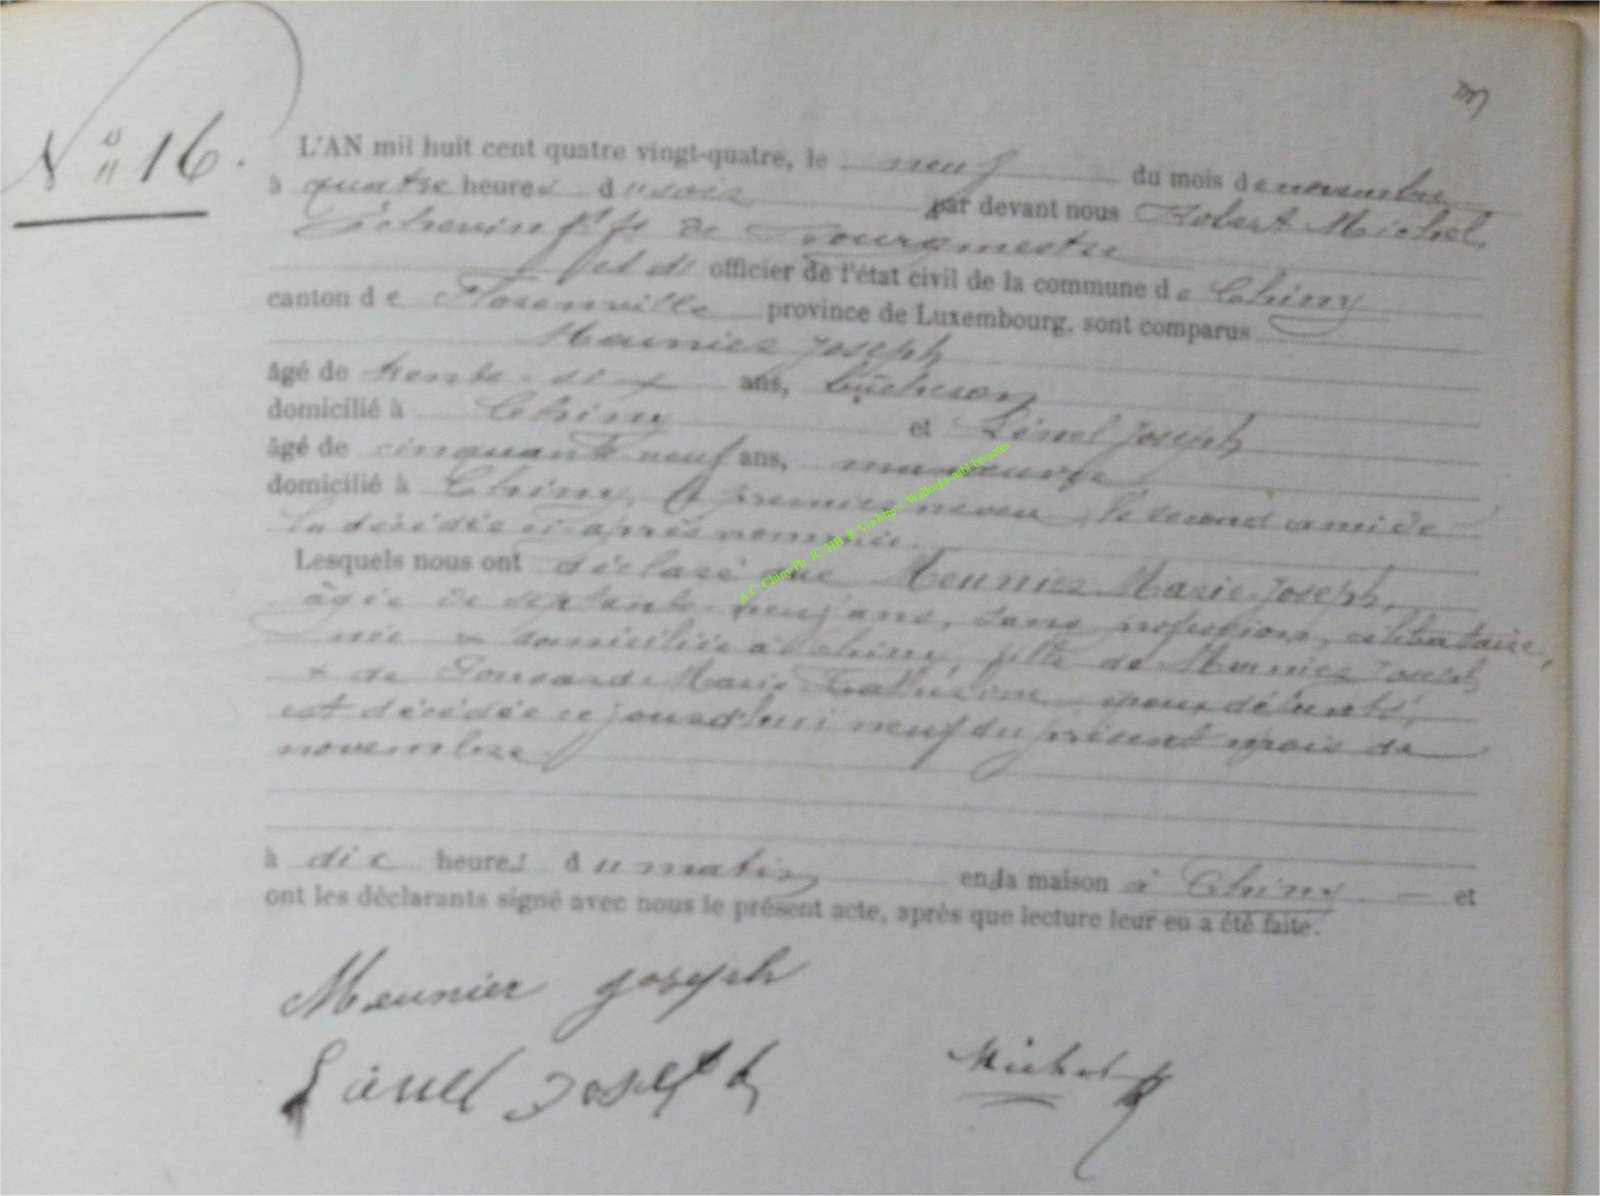 N° 16.
L'AN mil huit cent quatre vingt-quatre, le neuf du mois de novembre
à quatre heures du soir par devant nous Robert Michel,
Échevin ff de Bourgmestre
et de officier de l'état civil de la commune de Chiny
canton de Florenville province de Luxembourg, sont comparus
Meunier Joseph
âgé de trente-six ans, bûcheron
domicilié à Chiny et Joseph
âgé de cinquante neuf ans, manœuvre
domicilié à Chiny, le premier neveu, le second ami de
la décédée ci-après nommée.
Lesquels nous ont déclaré que Meunier Marie-Joseph,
âgée de septante-neuf ans, sans profession, célibataire,
née & domiciliée à Chiny, fille de Meunier Joseph
& de Ponsard Marie Catherine époux défunts,
est décédée ce jourd'hui neuf du présent mois de
novembre
à dix heures du matin en la maison à Chiny. — et
ont les déclarants signé avec nous le présent acte, après que lecture leur en a été faite.
Meunier Joseph
Joseph
Michel